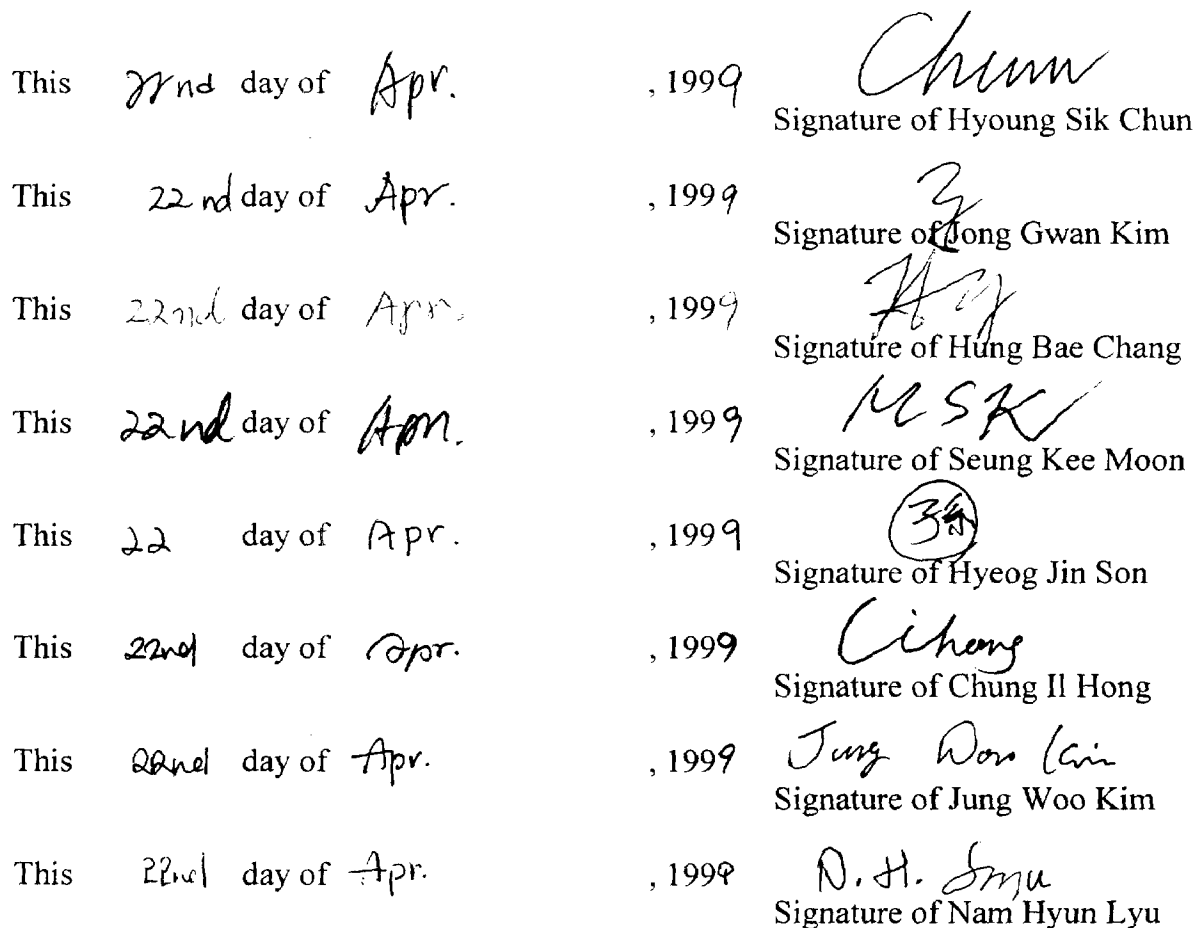 This 22nd day of Apr. , 1999 Chun
Signature of Hyoung Sik Chun
This 22nd day of Apr. , 1999
Signature of Jong Gwan Kim
This 22nd day of Apr. , 1999
Signature of Hung Bae Chang
This 22nd day of Apr. , 1999 MSK
Signature of Seung Kee Moon
This 22 day of Apr. , 1999 孫
Signature of Hyeog Jin Son
This 22nd day of Apr. , 1999 Cihong
Signature of Chung Il Hong
This 22nd day of Apr. , 1999 Jung Woo Kim
Signature of Jung Woo Kim
This 22nd day of Apr. , 1999 N. H.
Signature of Nam Hyun Lyu